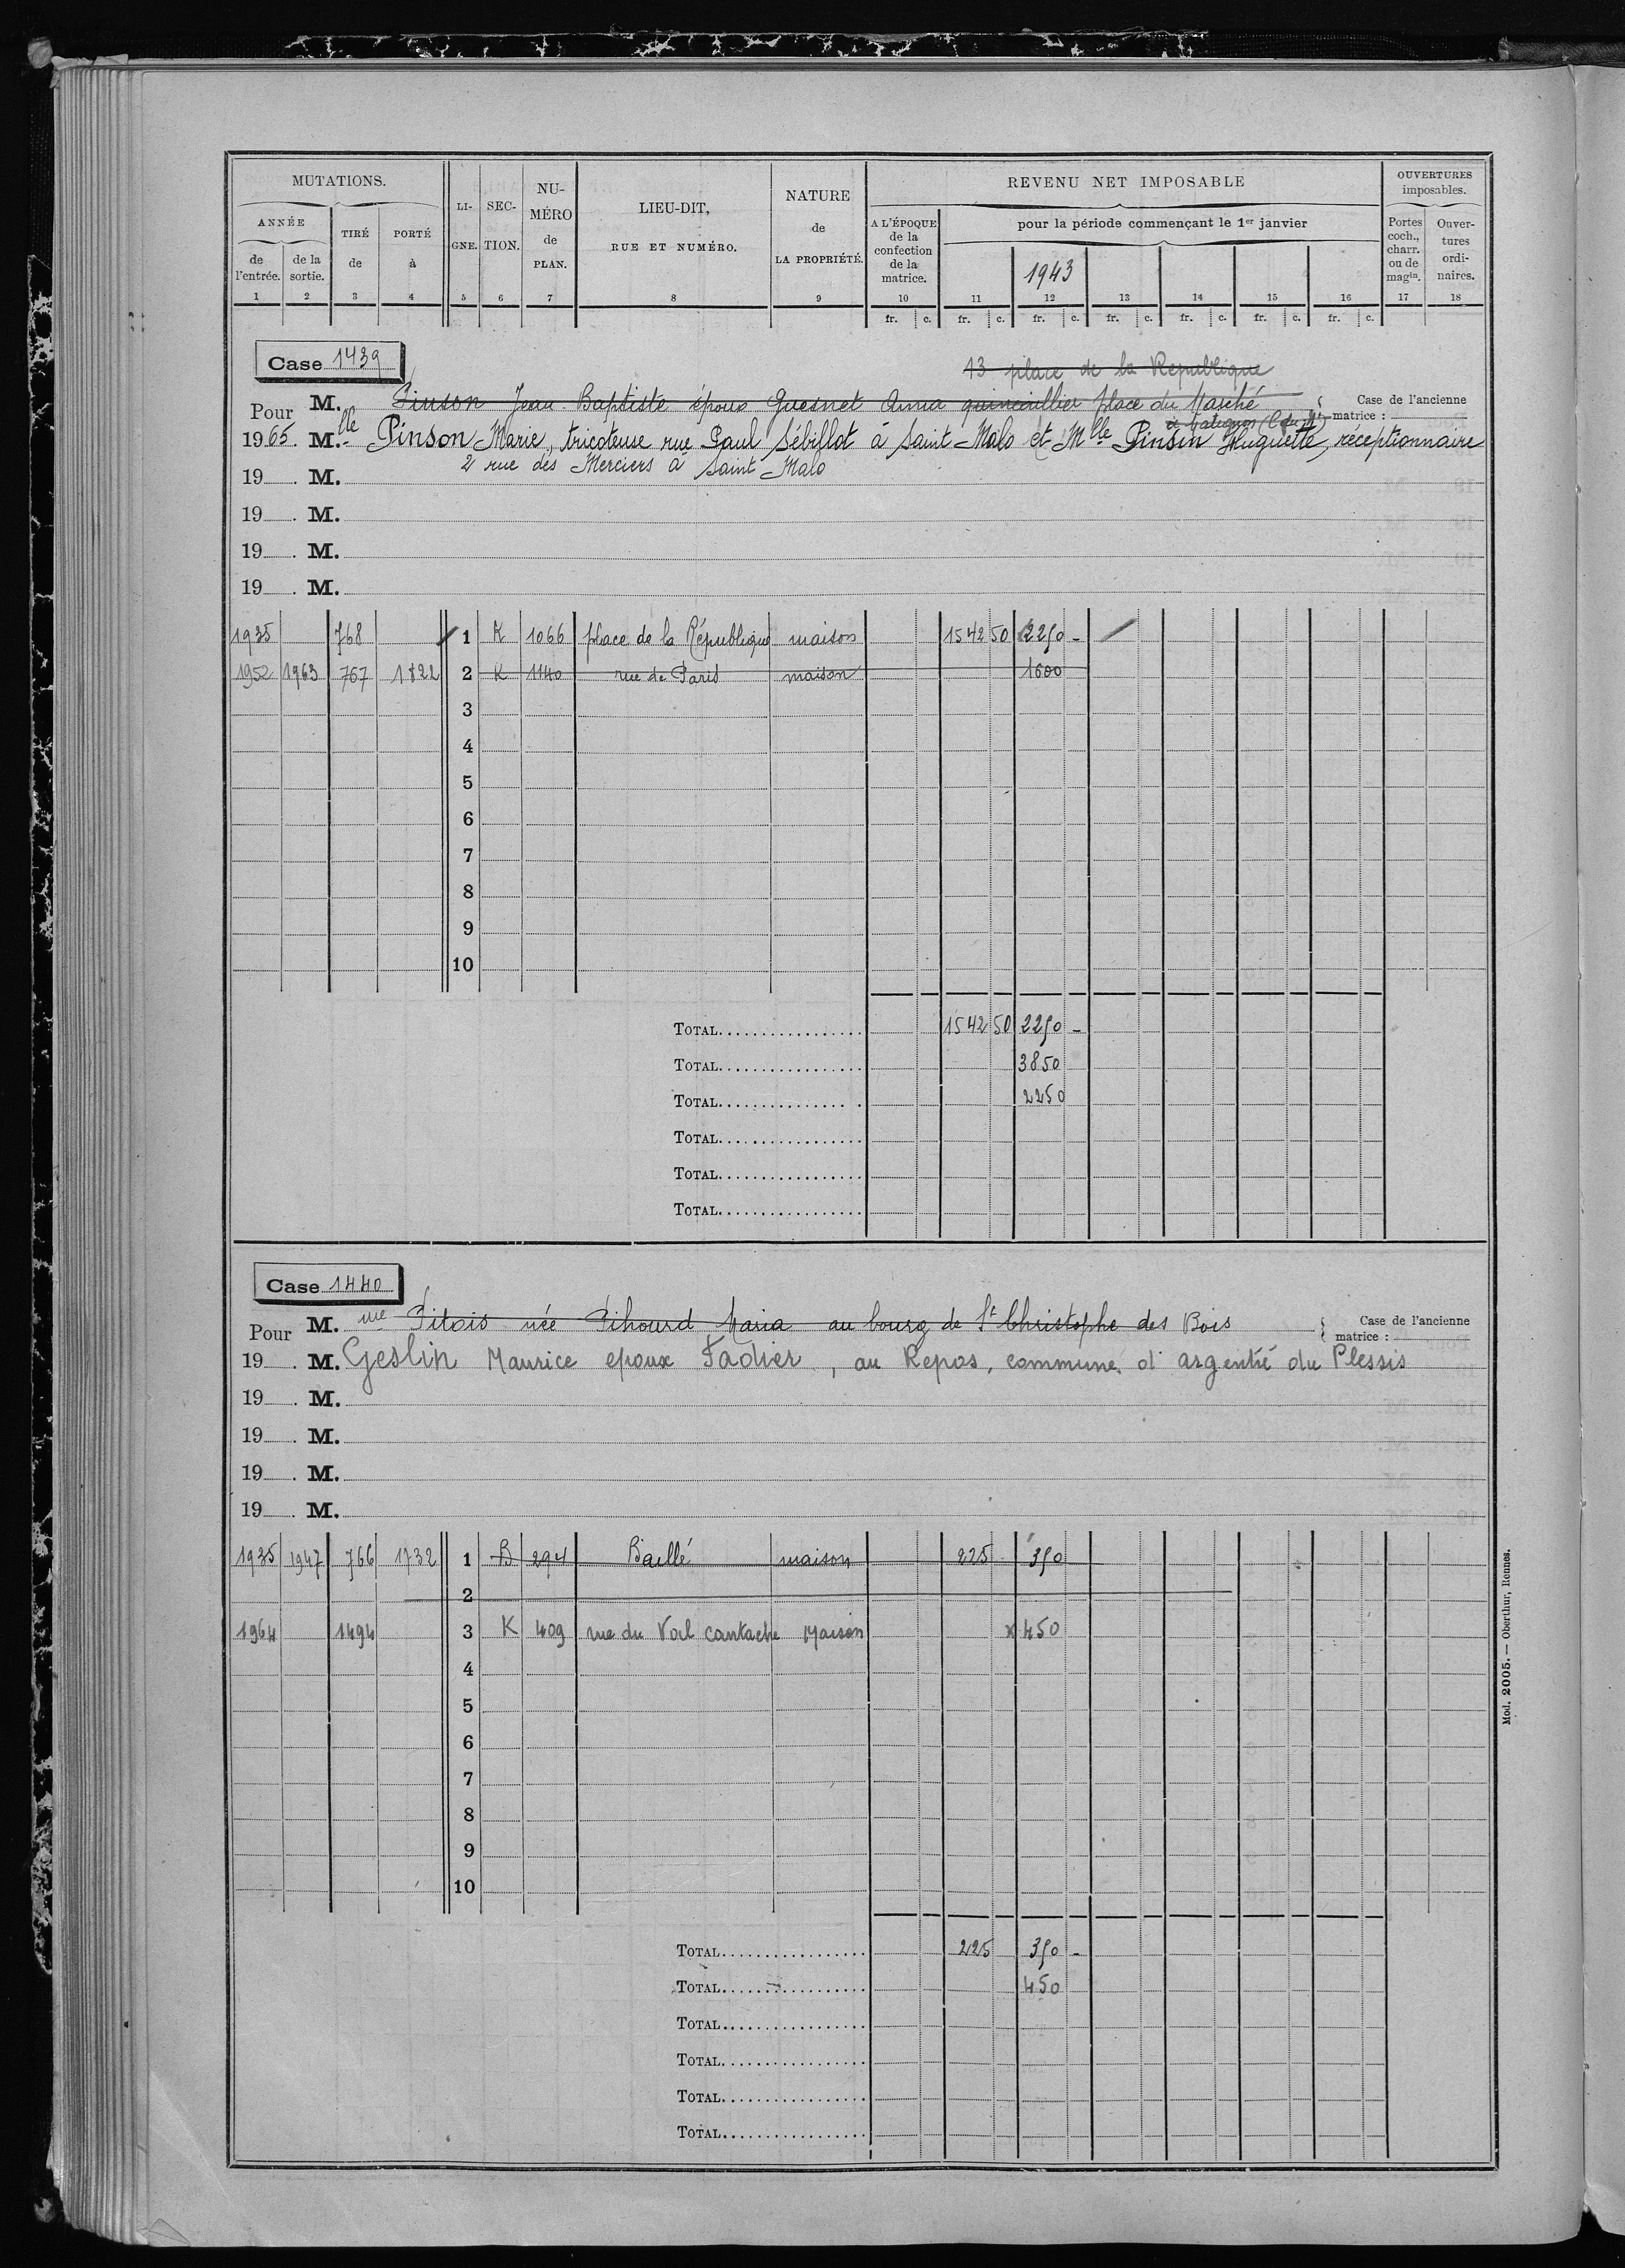 MUTATIONS. LI-GNE. SEC-TION. NU-MÉRO de PLAN. LIEU-DIT, RUE ET NUMÉRO. NATURE de LA PROPRIÉTÉ. REVENU NET IMPOSABLE OUVERTURES imposables.
ANNÉE TIRÉ de PORTÉ à A L'ÉPOQUE de la confection de la matrice. pour la période commençant le 1er janvier Portes coch., charr. ou de magin. Ouver-tures ordi-naires.
de l'entrée. de la sortie. 1943
1 2 3 4 5 6 7 8 9 10 11 12 13 14 15 16 17 18
fr. c. fr. c. fr. c. fr. c. fr. c. fr. c. fr. c.
Case 1439
13 place de la Republique
Pour M. Pinson Jean Baptiste époux Guesnet Anna quincaillier place du Marché Case de l'ancienne matrice :
à Matignon (C du N)
1965. M.lle Pinson Marie, tricoteuse rue Paul Sébillot à Saint Malo et Mlle Pinson Huguette, réceptionnaire
2 rue des Merciers à Saint Malo
19 . M.
19 . M.
19 . M.
19 . M.
1935 768 1 K 1066 place de la République maison 1542 50 2250 -
1952 1963 767 1822 2 K 1140 rue de Paris maison 1600
3
4
5
6
7
8
9
10
TOTAL 1542 50 2250 -
TOTAL 3850
TOTAL 2250
TOTAL
TOTAL
TOTAL
Case 1440
Pour M. Pitois née Pihourd Maria au bourg de St Christophe des Bois Case de l'ancienne matrice :
19 . M. Geslin Maurice epoux Fadier, au Repos, commune d'argentré du Plessis
19 . M.
19 . M.
19 . M.
19 . M.
1935 1947 766 1732 1 B 294 Baellé maison 225 350
2
1964 1494 3 K 409 rue du Val cantache Maison x 450
4
5
6
7
8
9
10
TOTAL 225 350 -
TOTAL 450
TOTAL
TOTAL
TOTAL
TOTAL
Mod. 2005. — Oberthur, Rennes.